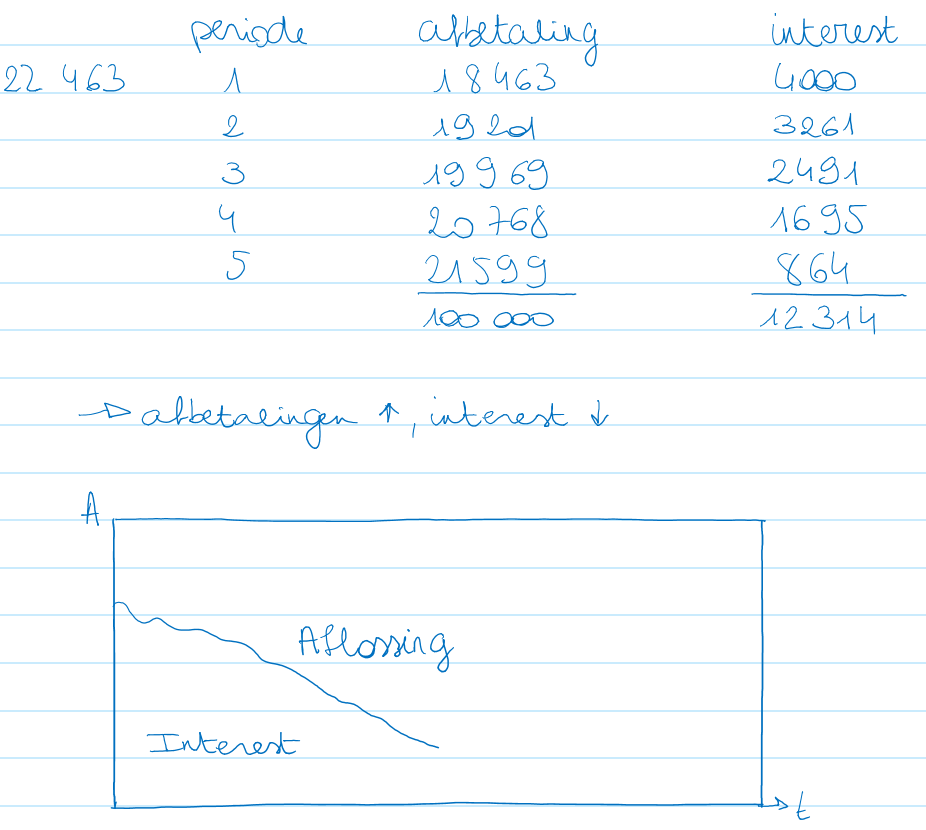 periode afbetaling interest
22 463 1 18 463 4000
2 19 201 3261
3 19 969 2491
4 20 768 1695
5 21 599 864
100 000 12 314
→ afbetalingen ↑, interest ↓
A
Aflossing
Interest
t